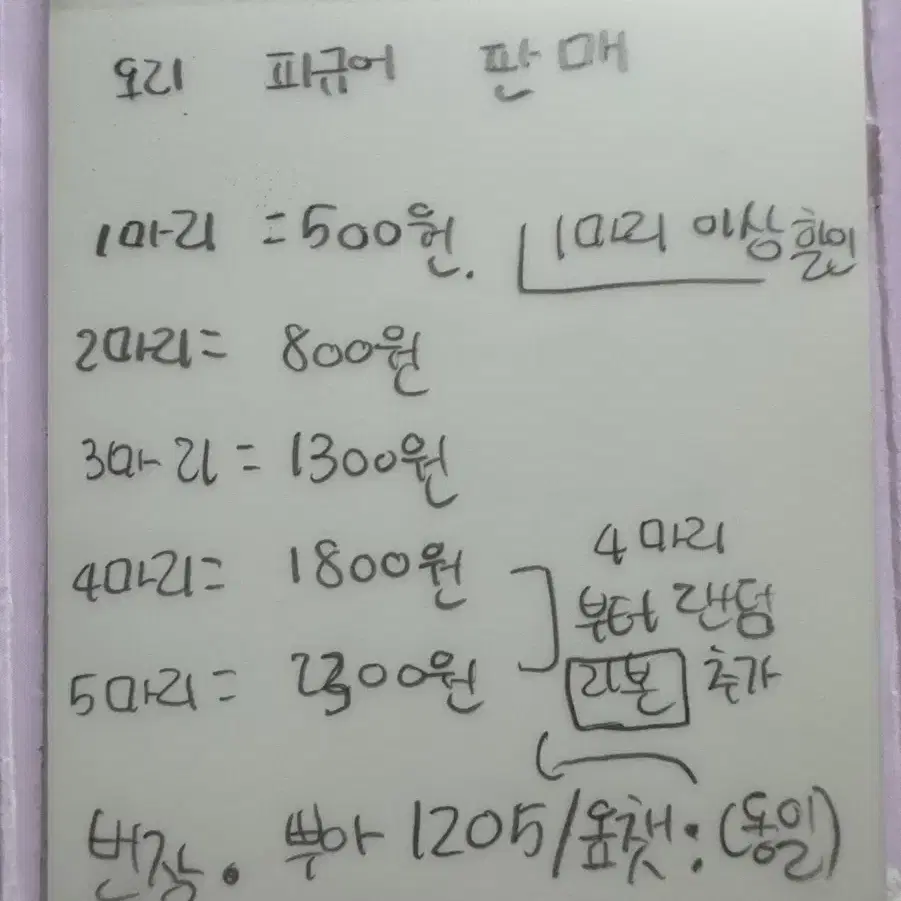 토리 피규어 판매
1마리 = 500원.
1마리 이상 할인
2마리 = 800원
3마리 = 1300원
4마리 = 1800원
5마리 = 2300원
4마리
부터 랜덤
리본 추가
번장. 뿌아 1205/욥챗: (동일)